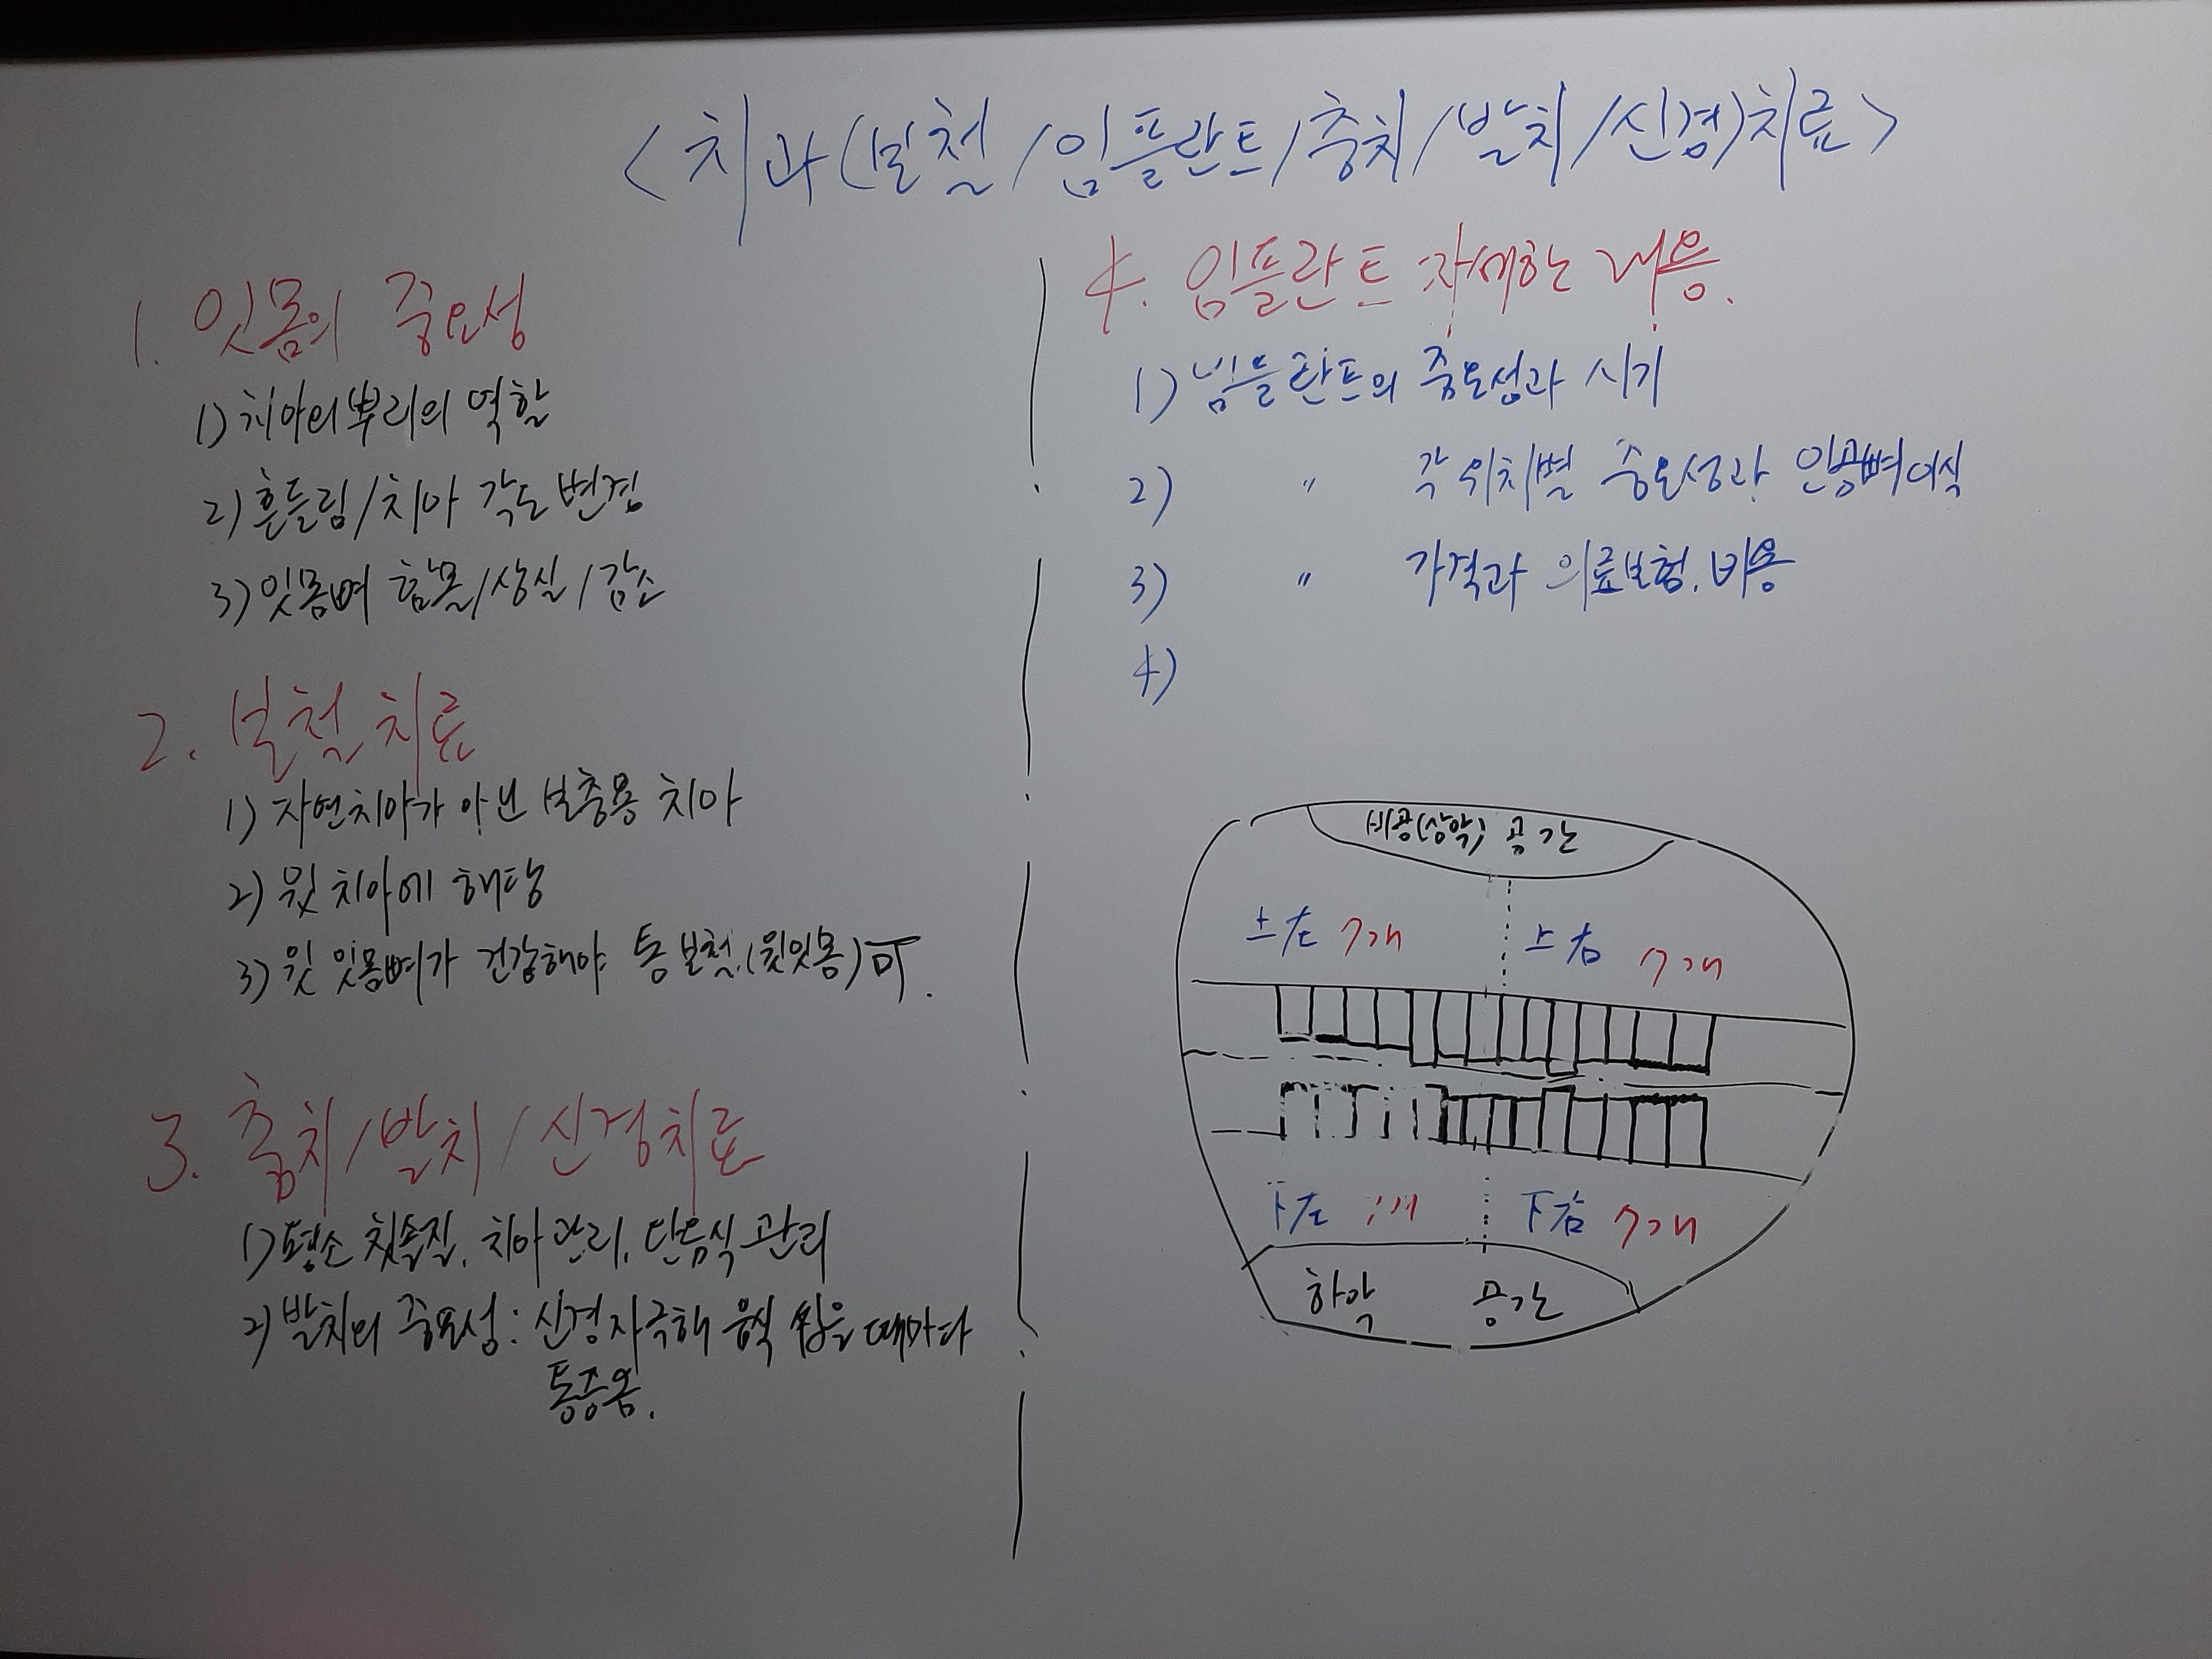 <치과(보철/임플란트/충치/발치/신경)치료>
1. 잇몸의 중요성
1) 치아의뿌리의 역할
2) 흔들림/치아 각도 변경
3) 잇몸뼈 함몰/상실/감소
2. 보철치료
1) 자연치아가 아닌 보충용 치아
2) 윗 치아에 해당
3) 윗 잇몸뼈가 건강해야 통 보철.(윗잇몸)可.
3. 충치/발치/신경치료
1) 평소 칫솔질, 치아관리, 단음식 관리
2) 발치의 중요성: 신경자극해 음식 씹을 때마다
통증옴.
4. 임플란트 자세한 내용.
1) 임플란트의 중요성과 시기
2) 〃 각 위치별 중요성과 인공뼈이식
3) 〃 가격과 의료보험. 비용
4)
비공(상악) 공간
上左 7개 上右 7개
下左 下右 7개
하악 공간